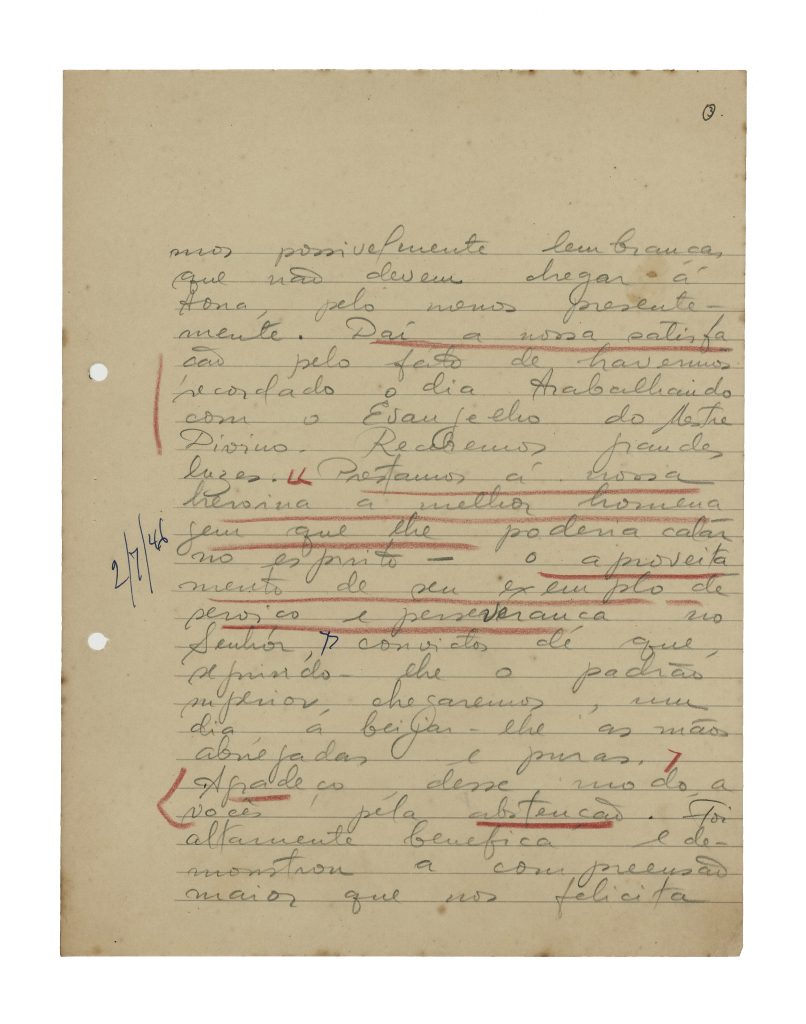 3.
mos possivelmente lembranças
que não devem chegar á
tona, pelo menos presente-
mente. Daí a nossa satisfa
ção pelo fato de havermos
recordado o dia trabalhando
com o Evangelho do Mestre
Divino. Recebemos grandes
luzes. Prestamos á nossa
heroina a melhor homena
gem que lhe poderia calar
no espirito — o aproveita
mento de seu exemplo de
2/7/46
serviço e perseverança no
Senhor, convictos de que,
seguindo-lhe o padrão
superior, chegaremos, um
dia á beijar-lhe as mãos
abnegadas e puras.
Agradeço, desse modo, a
vocês pela abstenção. Foi
altamente benefica e de-
monstrou a compreensão
maior que nos felicita